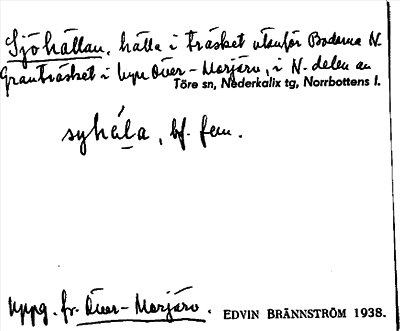 Sjöhällan, hälla i träsket utanför Bodarna N.
Granträsket i byn Över-Morjärv, i N. delen av
Töre sn, Nederkalix tg, Norrbottens l.
syhála, bf. fem.
Uppg. fr. Över-Morjärv. EDVIN BRÄNNSTRÖM 1938.